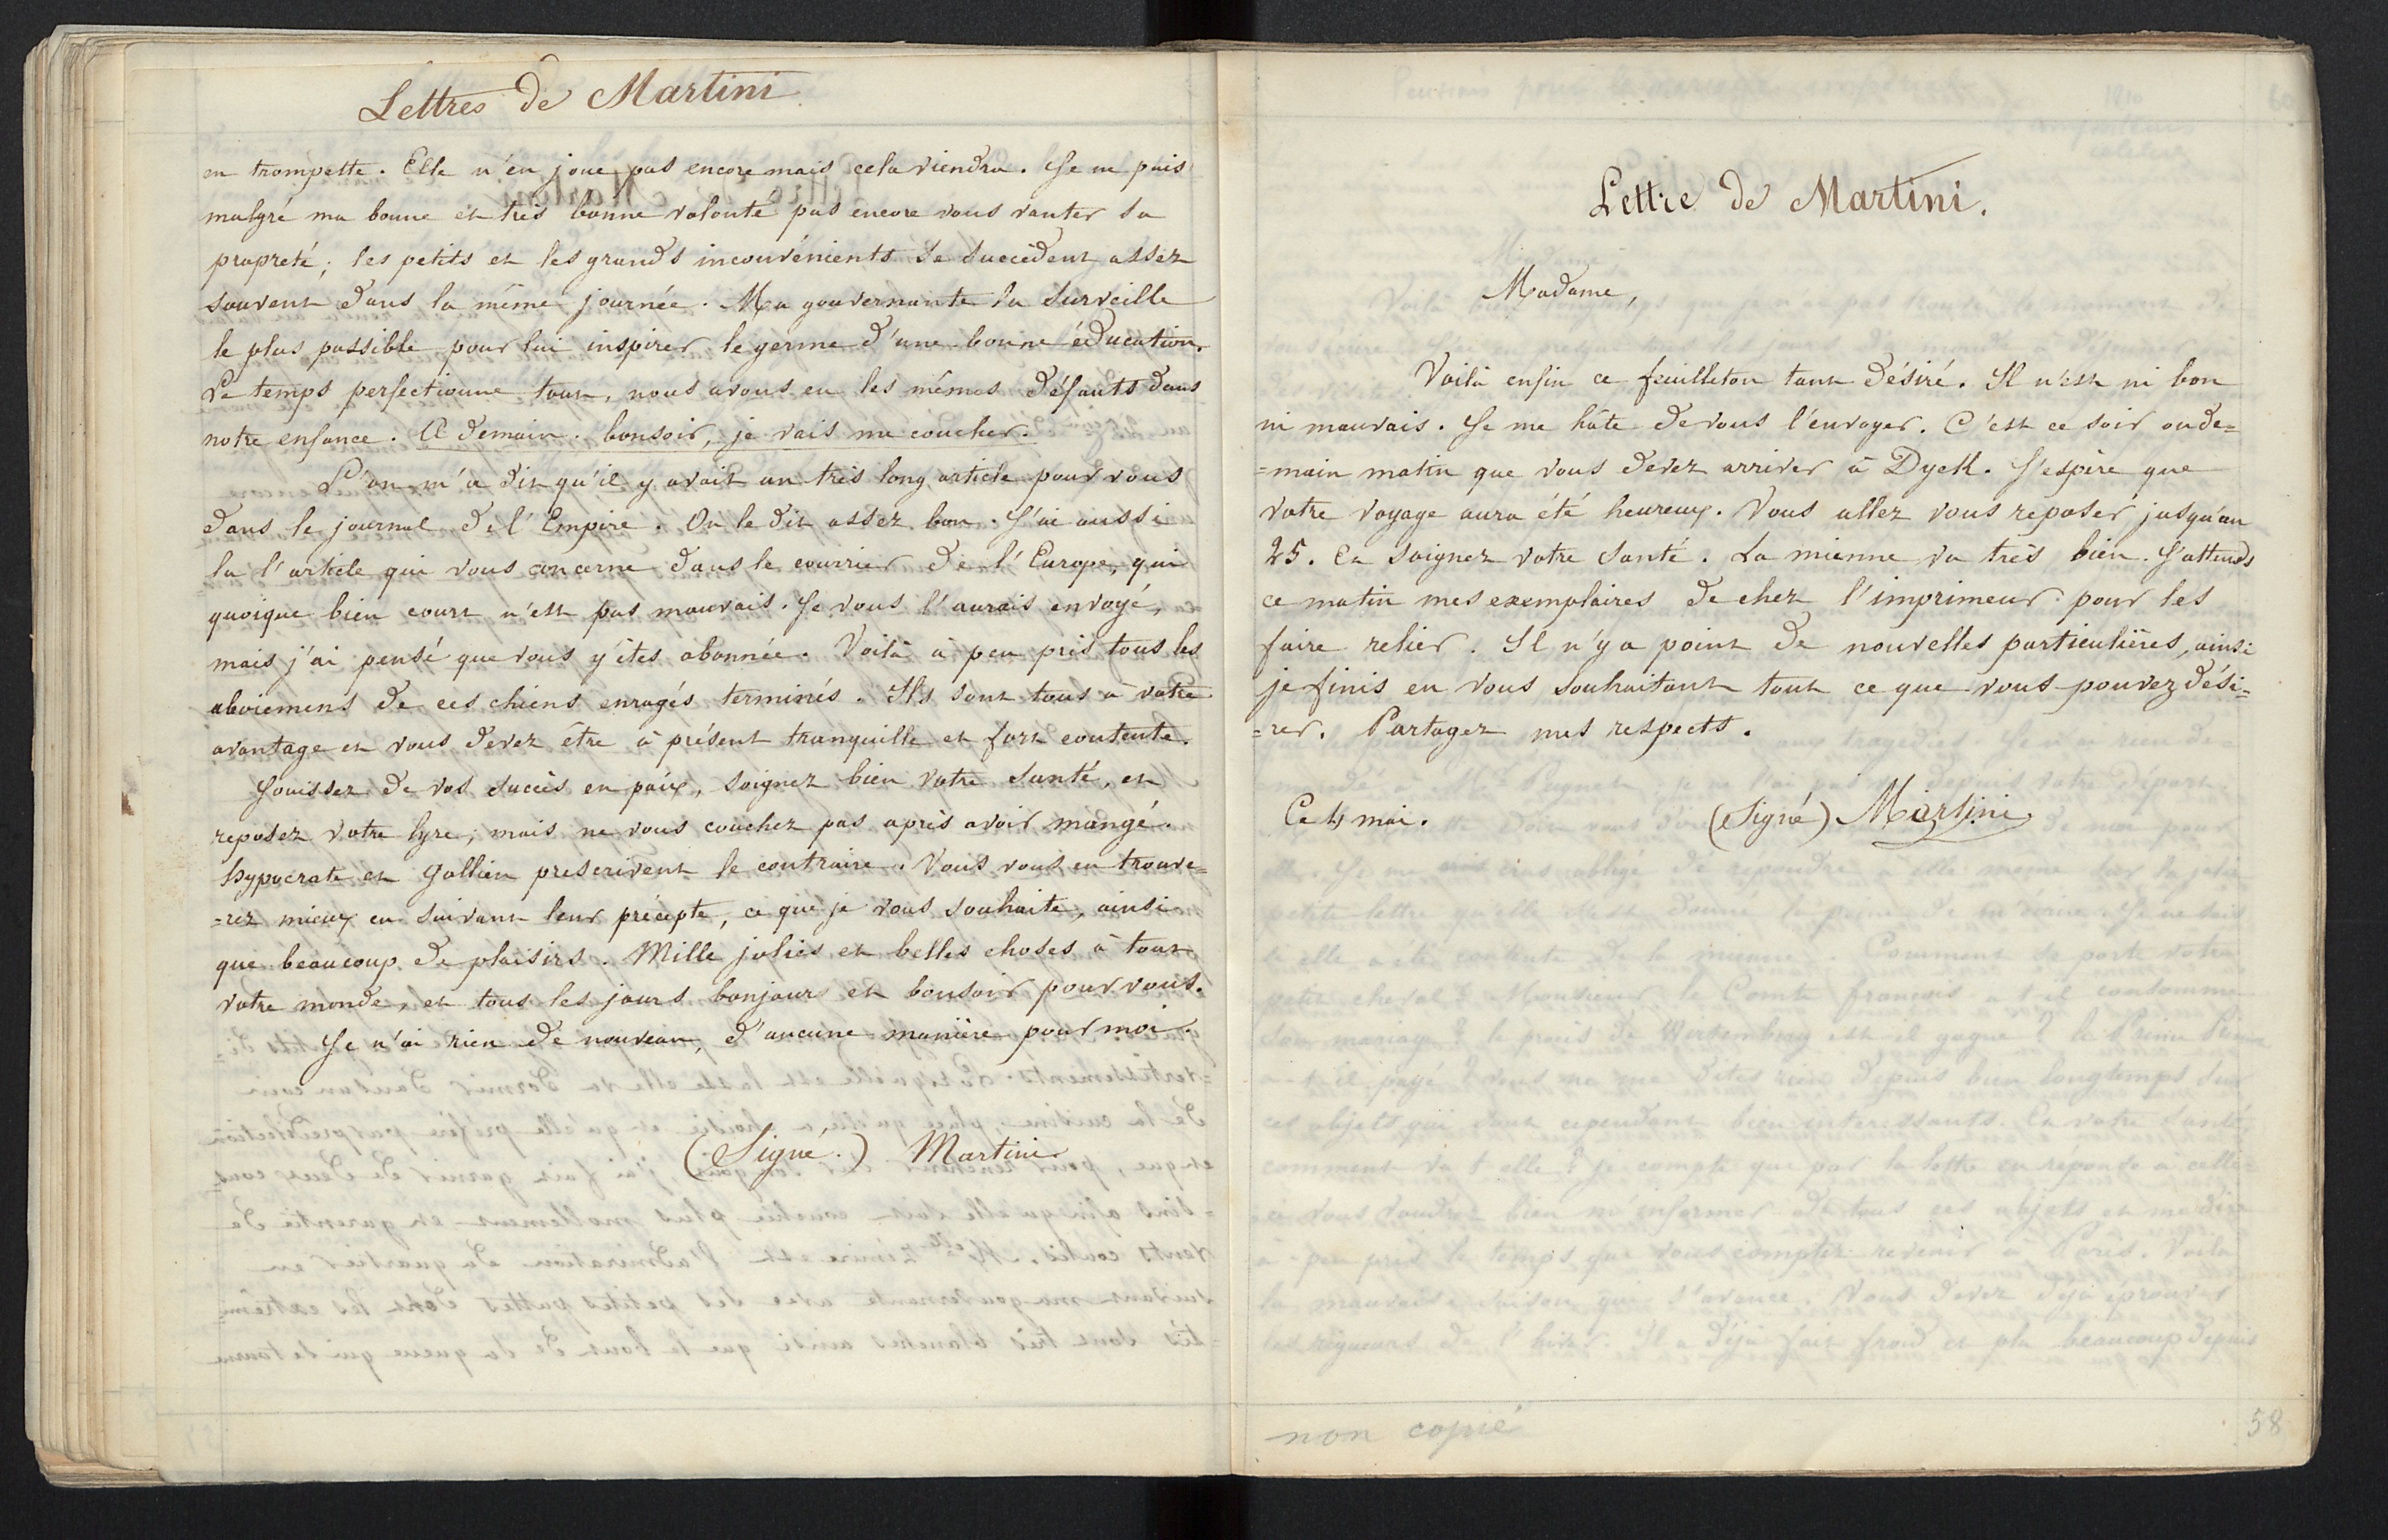 Lettres de Martini
en trompette. Elle n'en joue pas encore mais cela viendra. Je ne puis
malgré ma bonne et très bonne volonté pas encore vous vanter sa
propreté; les petits et les grands inconvénients se succèdent assez
souvent dans la même journée. Ma gouvernante la surveille
le plus possible pour lui inspirer le germe d'une bonne éducation.
Le temps perfectionne tout, nous avons eu les mêmes défauts dans
notre enfance. A demain. bonsoir, je vais me coucher.
L'on m'a dit qu'il y avait un très long article pour vous
dans le journal de l'Empire. On le dit assez bon. J'ai aussi
lu l'article qui vous concerne dans le courrier de l'Europe, qui
quoique bien court n'est pas mauvais. Je vous l'aurais envoyé,
mais j'ai pensé que vous y êtes abonnée. Voilà à peu près tous les
aboiemens de ces chiens enragés terminés. Ils sont tous à votre
avantage et vous devez être à présent tranquille et fort contente.
Jouissez de vos succès en paix, soignez bien votre santé, et
reposez votre lyre; mais ne vous couchez pas après avoir mangé.
hyppocrate et Gallien prescrivent le contraire. Vous vous en trouve=
=rez mieux en suivant leur précepte, ce que je vous souhaite, ainsi
que beaucoup de plaisirs. Mille jolies et belles choses à tout
votre monde, et tous les jours bonjour et bonsoir pour vous.
Je n'ai rien de nouveau, d'aucune manière pour moi.
(Signé.) Martini
Lettre de Martini.
Madame,
Voilà enfin ce feuilleton tant désiré. Il n'est ni bon
ni mauvais. Je me hâte de vous l'envoyer. C'est ce soir ou de=
=main matin que vous devez arriver à Dyck. J'espère que
votre voyage aura été heureux. Vous allez vous reposer jusqu'au
25. Et soignez votre santé. La mienne va très bien. J'attends
ce matin mes exemplaires de chez l'imprimeur pour les
faire relier. Il n'y a point de nouvelles particulières, ainsi
je finis en vous souhaitant tout ce que vous pouvez dési=
=rer. Partagez mes respects.
Ce 4 mai. (Signé) Martini
non copié
58